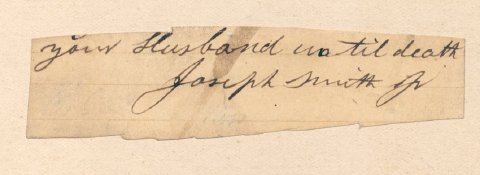 your Husband until death
Joseph Smith Jr